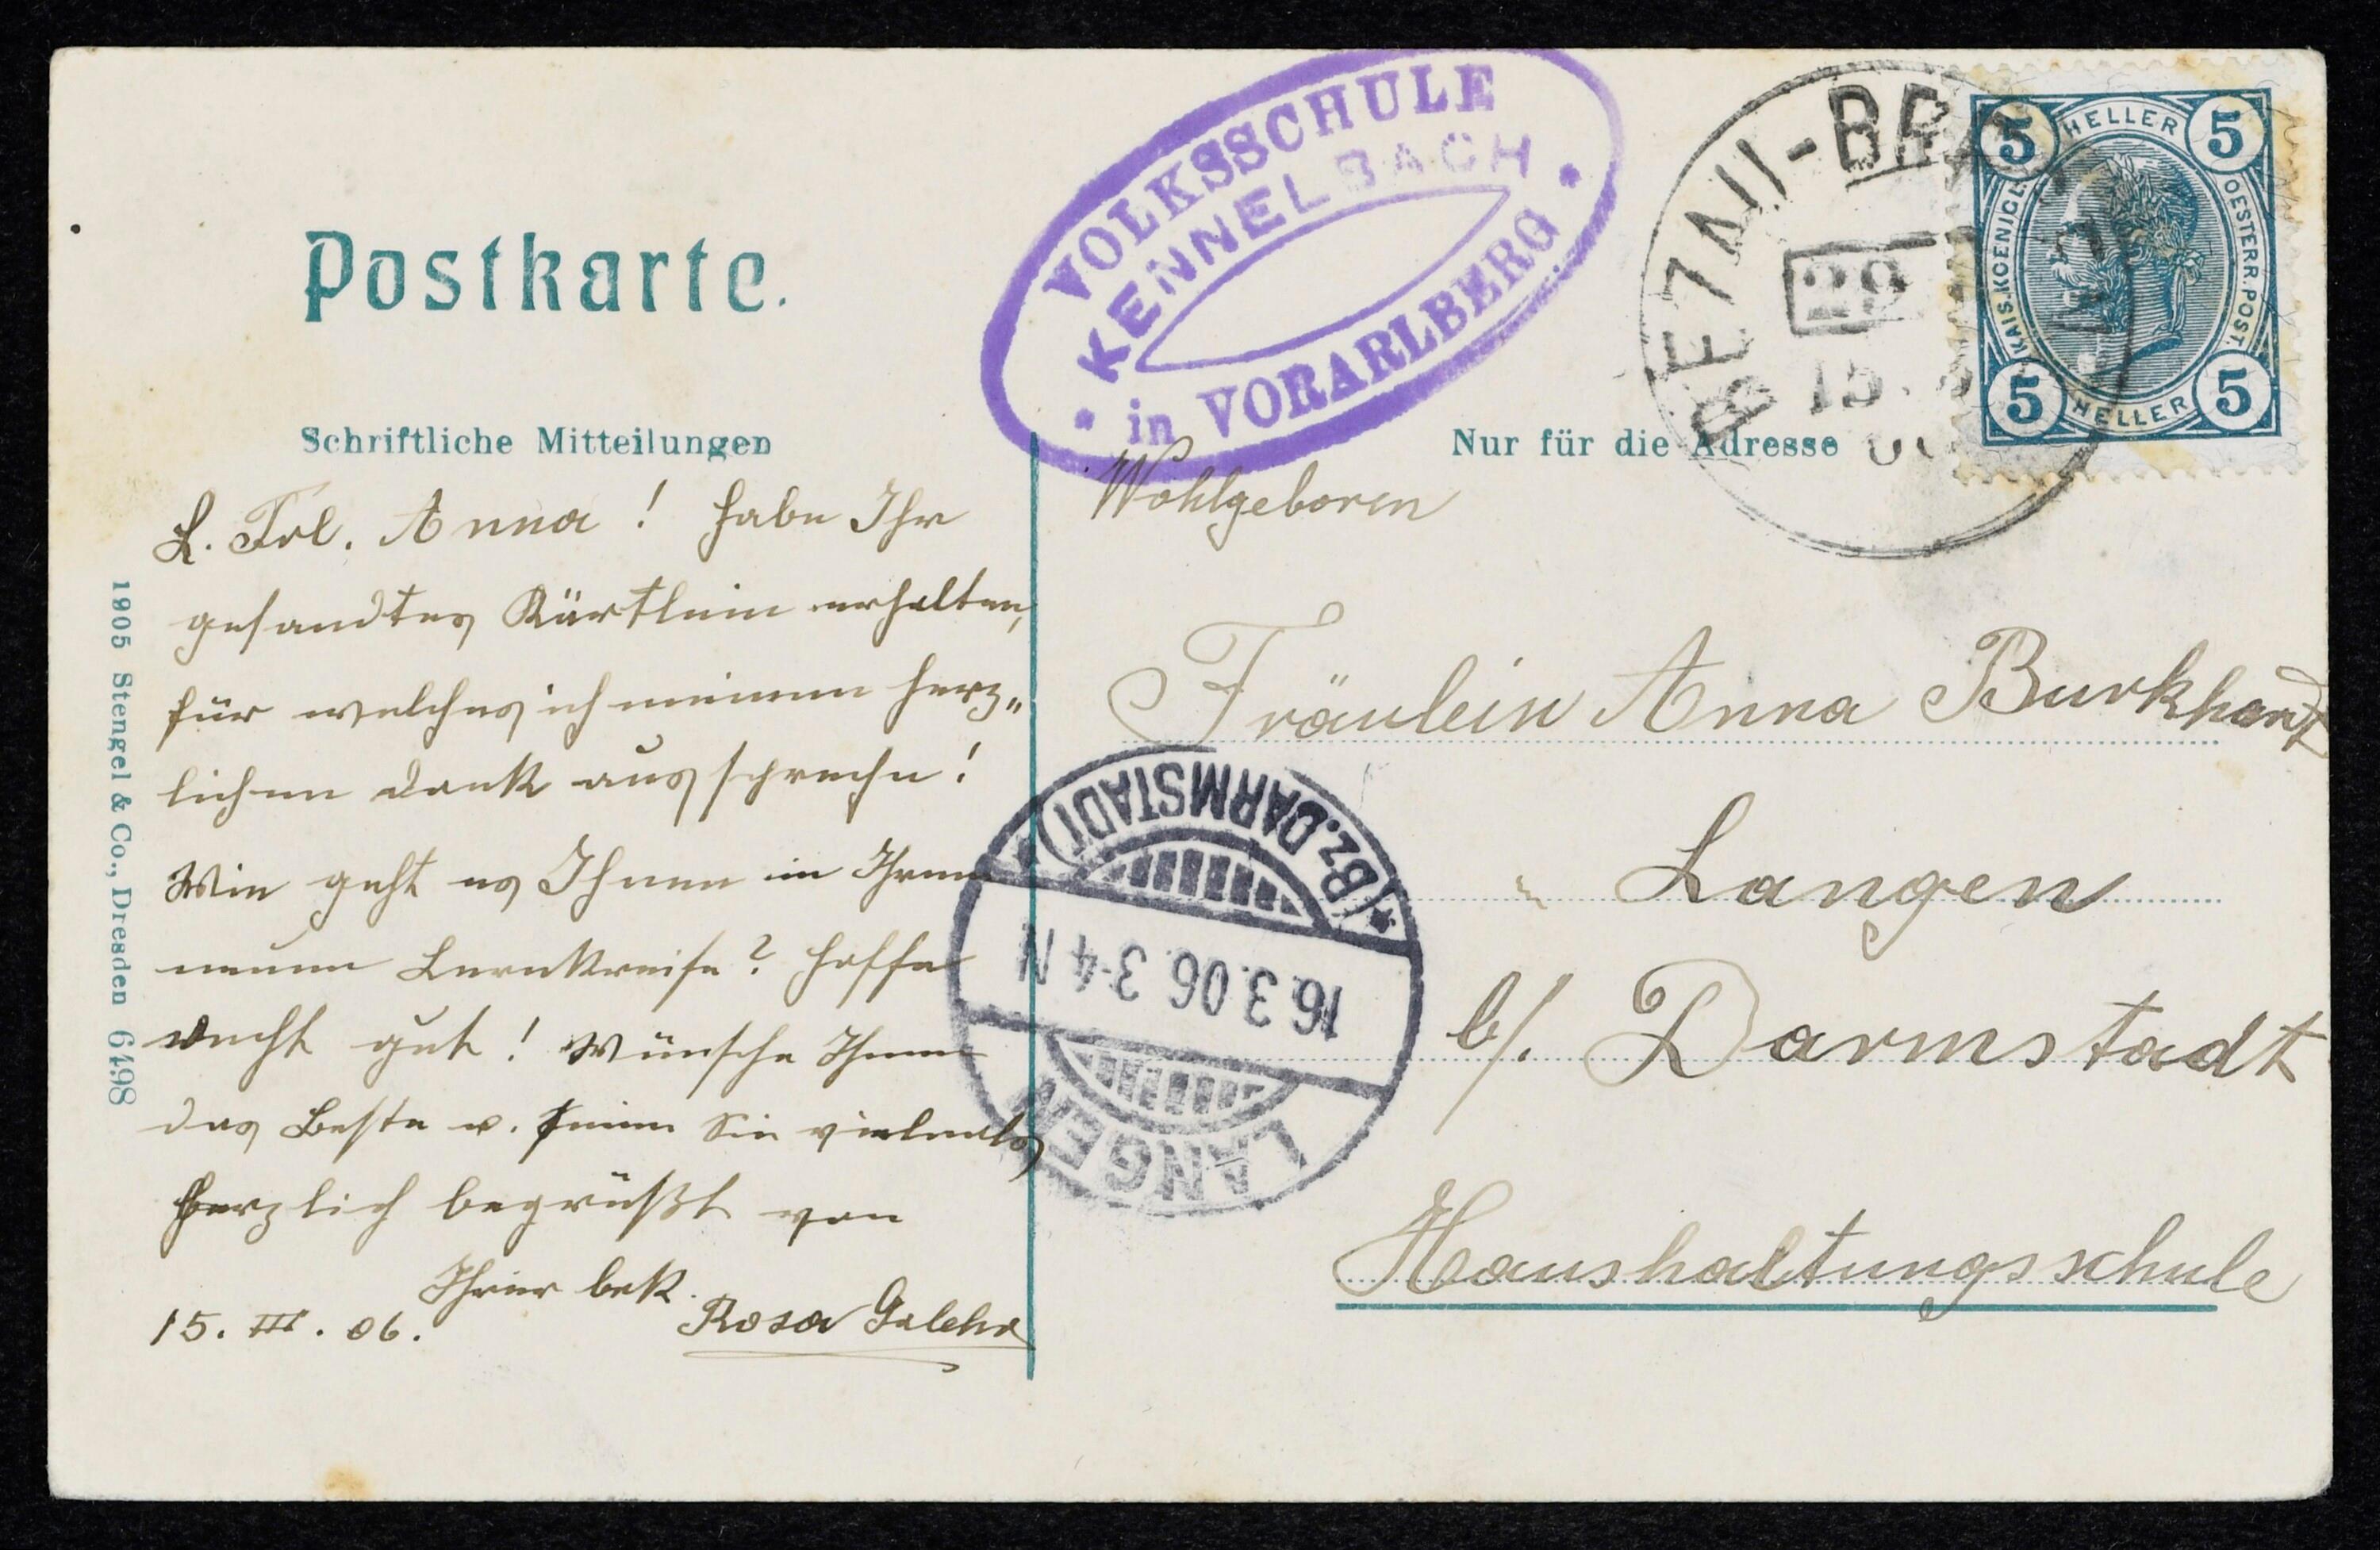 Postkarte.
VOLKSSCHULE
KENNELBACH
in VORARLBERG
BEZAU-BRE
29
15.
5 HELLER 5
KAIS. KOENIGL. OESTERR. POST.
5 HELLER 5
Schriftliche Mitteilungen
Nur für die Adresse
L. Frl. Anna! Habe Ihr
gesandtes Kärtlein erhalten,
für welches ich meinen herz„
lichen Dank ausspreche!
Wie geht es Ihnen in Ihrem
neuen Lernkreise? Hoffe
recht gut! Wünsche Ihnen
das Beste u. seien Sie vielmals
herzlich begrüßt von
Ihrer bek.
15. III. 06. Rosa
Wohlgeboren
Fräulein Anna Burkhart
Langen
b/. Darmstadt
Haushaltungsschule
LANGEN
16.3.06. 3-4 N
*(Bz. DARMSTADT)*
1905 Stengel & Co., Dresden 6498